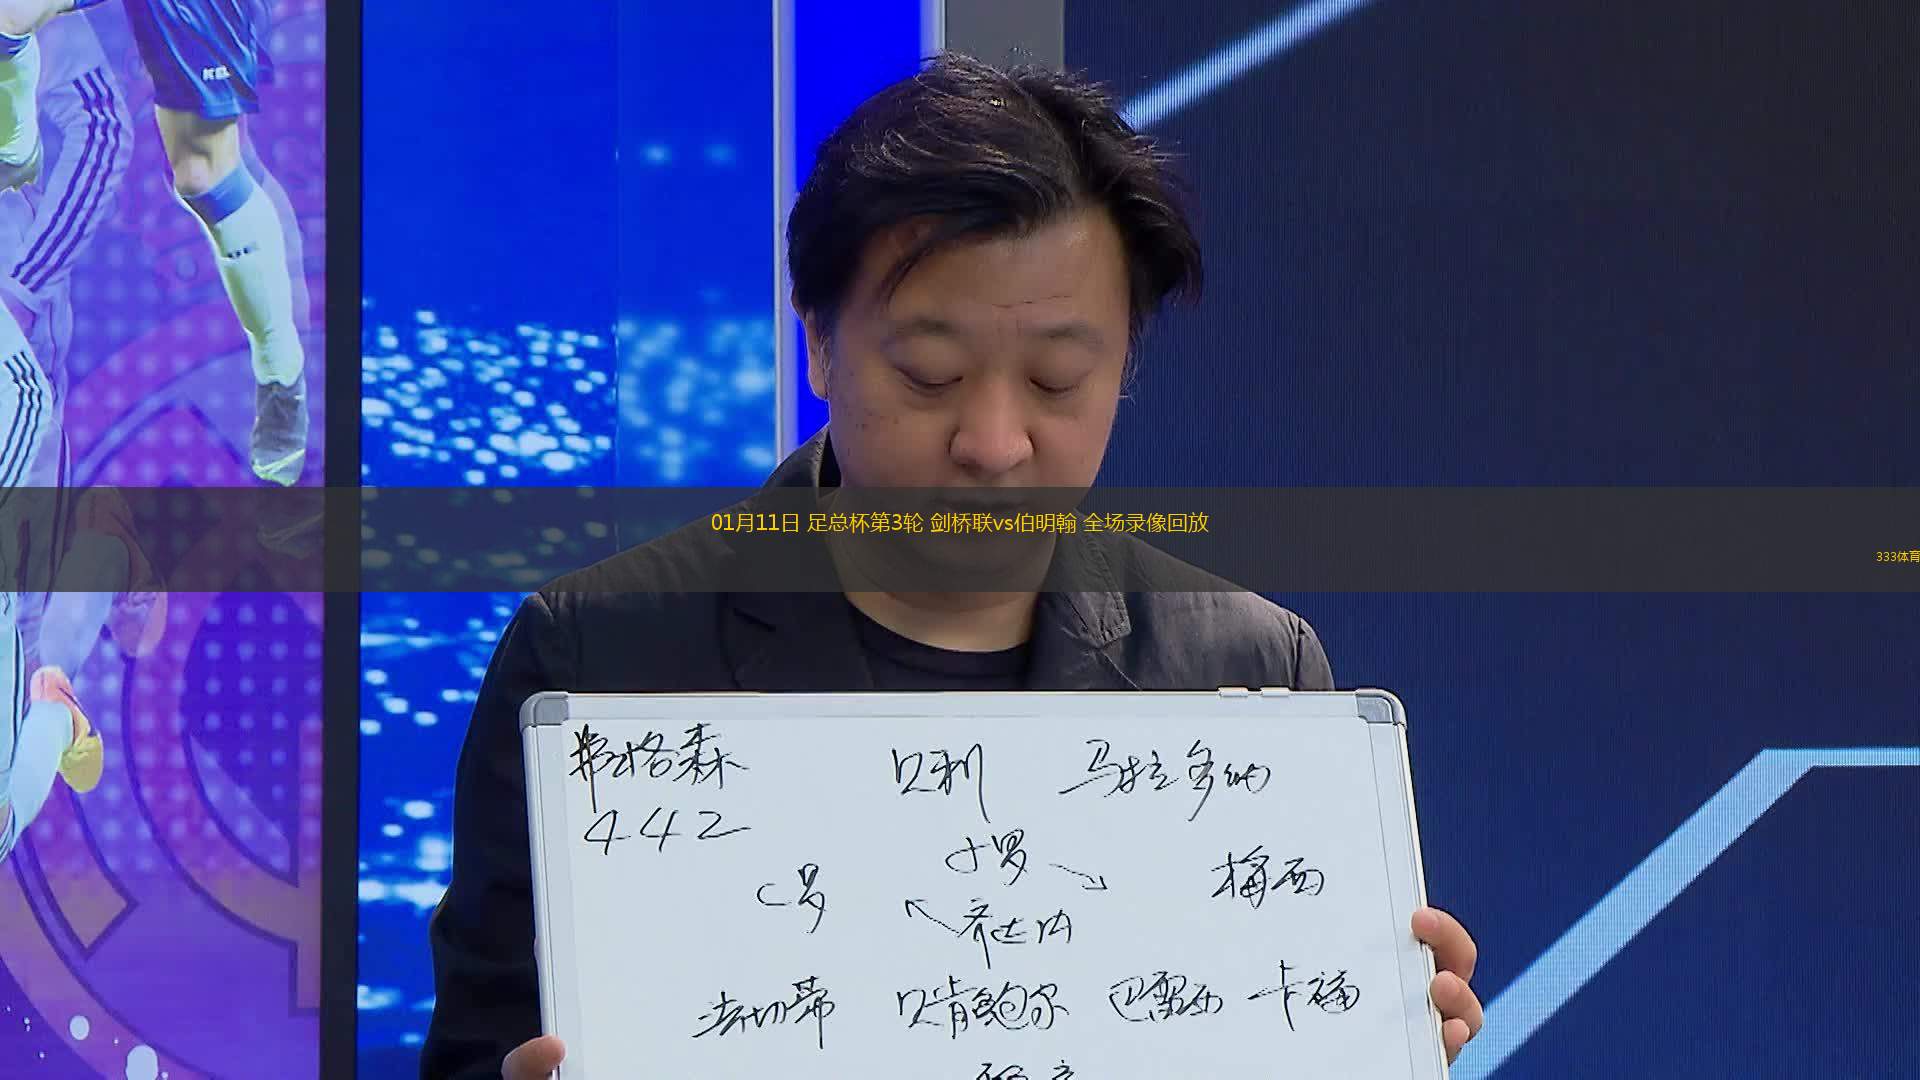 KEL
01月11日 足总杯第3轮 剑桥联vs伯明翰 全场录像回放
333体育
弗格森 贝利 马拉多纳
442
小罗
C罗 梅西
齐达内
法切蒂 贝肯鲍尔 巴雷西 卡福